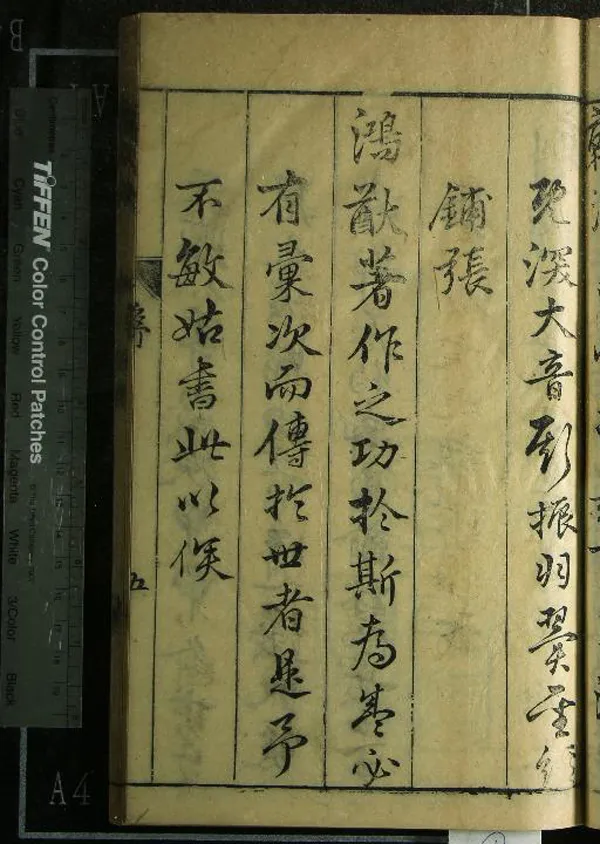 既深大音斯振羽翼聖經
鋪張
鴻猷著作之功於斯為盛必
有彙次而傳於世者是予
不敏姑書此以俟
序
五
TIFFEN Color Control Patches
Blue Cyan Green Yellow Red Magenta White 3/Color Black
A4